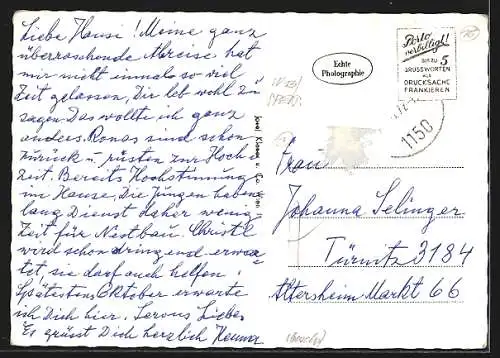 Liebe Hansi! Meine ganz
überraschende Abreise hat
mir nicht einmal so viel
Zeit gelassen, Dir leb wohl zu
sagen. Das wollte ich ganz
anders. Ronas sind schon
zurück u. rüsten zur Hoch
zeit. Bereits Hochstimmung
im Hause. Die Jungen haben
lang Dienst daher wenig
Zeit für Nestbau. Christl
wird schon dringend erwar
tet, sie darf auch helfen.
Spätestens Oktober erwarte
ich Dich hier. Servus Liebe.
Es grüsst Dich herzlich
Echte
Photographie
Porto
verbilligt!
BIS ZU 5
GRUSSWORTEN
ALS
DRUCKSACHE
FRANKIEREN
1150
Frau
Johanna Selinger
Türnitz 3184
Altersheim Markt 66